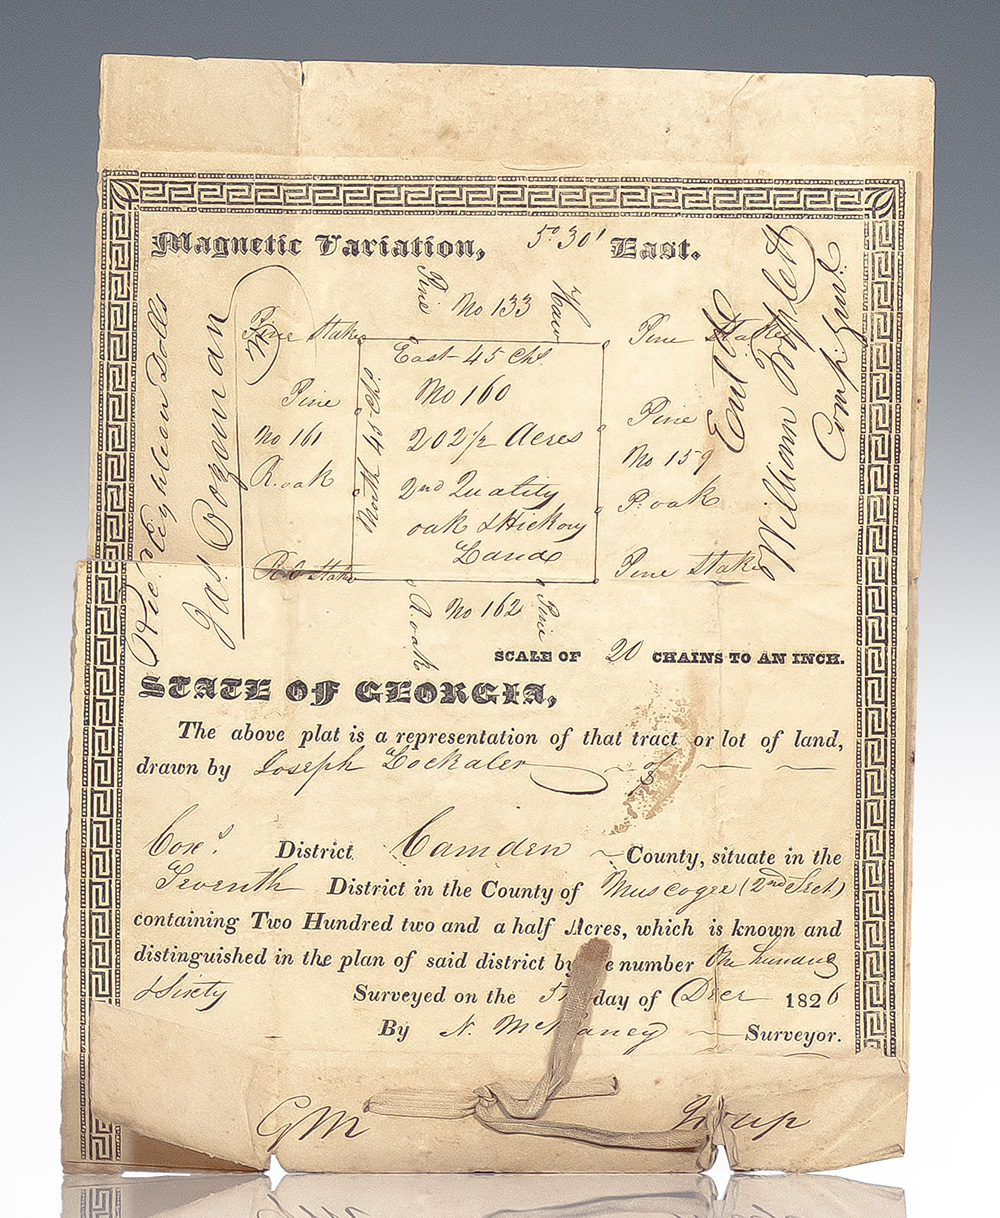 Magnetic Variation, 5° 30' East.
Pine No 133 Haw
Pine Stake Pine Stake
East 45 Chs.
No 160
Pine Pine
202 1/2 Acres
No 161 North 45 Chs. No 159
R. oak 2nd Quality P. oak
oak & Hickory
Land
R O Stake Pine Stake
R. oak No 162 Pine
Eighteen Dolls
Jas Bozeman
Ent
William
Comp. Genl.
SCALE OF 20 CHAINS TO AN INCH.
STATE OF GEORGIA,
The above plat is a representation of that tract or lot of land,
drawn by Joseph Lockaler of
Cox's District Camden County, situate in the
Seventh District in the County of Muscogee (2nd Sect)
containing Two Hundred two and a half Acres, which is known and
distinguished in the plan of said district by number One hundred
& Sixty Surveyed on the 5th day of Decr 1826
By N. Surveyor.
G M Troup